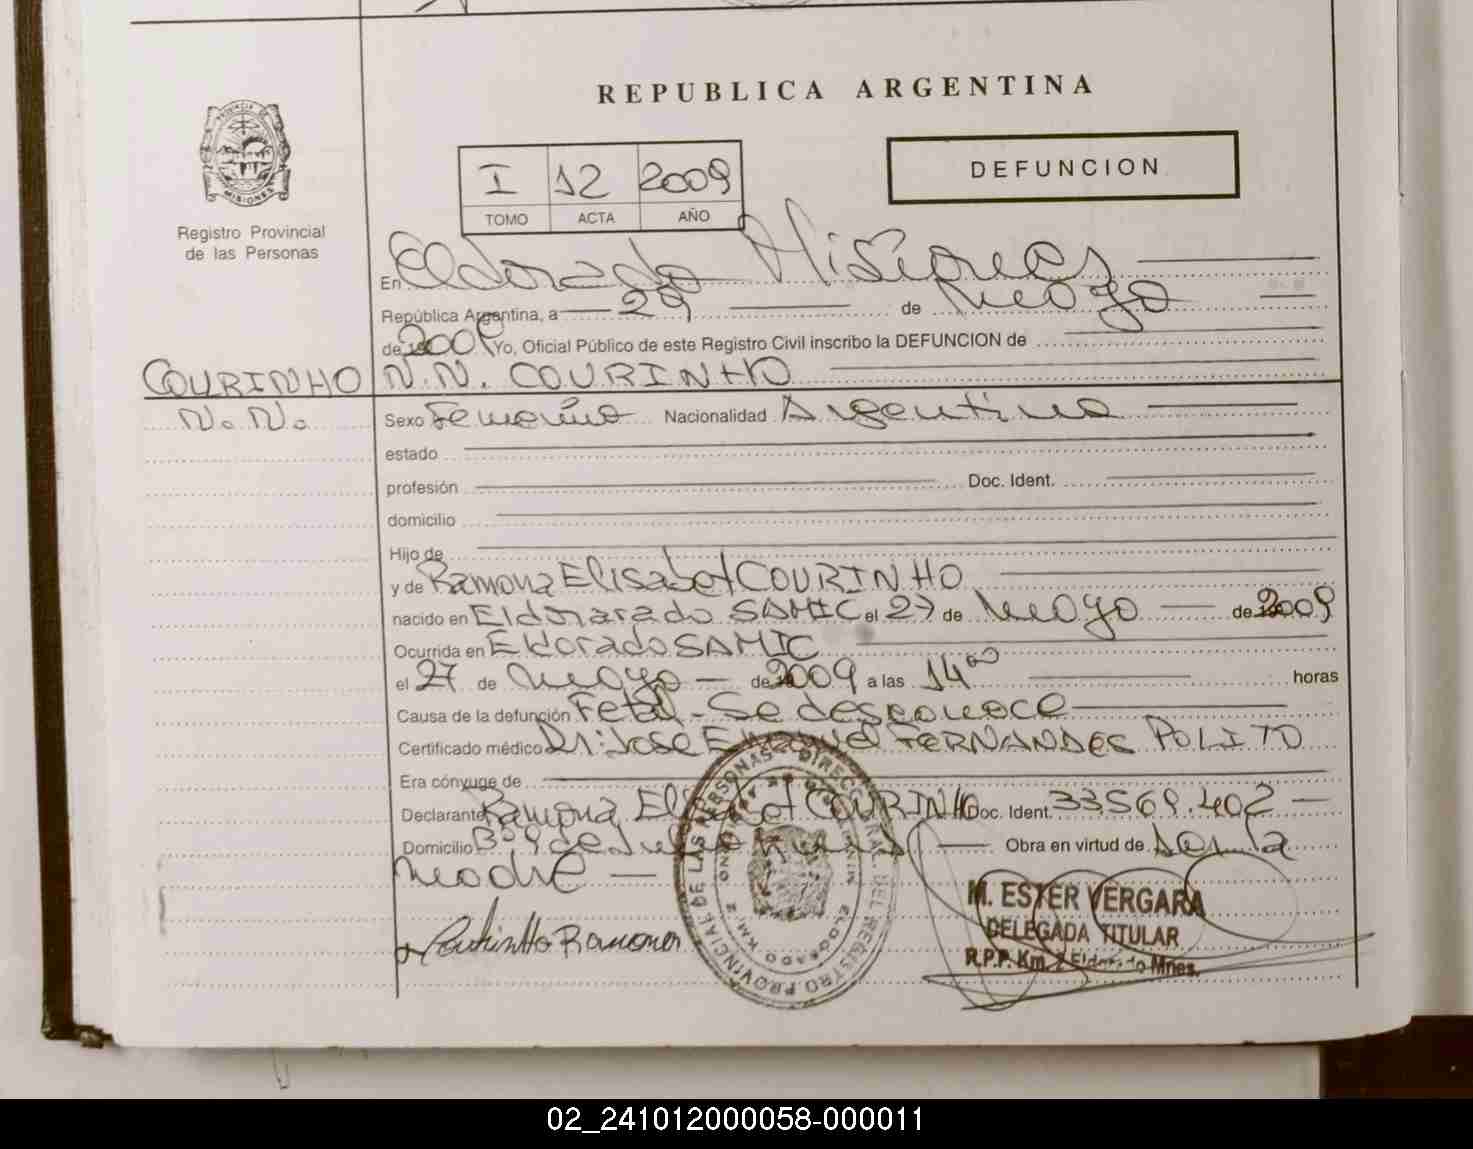 REPUBLICA ARGENTINA
PROVINCIA DE
MISIONES
Registro Provincial
de las Personas
I 12 2009
TOMO ACTA AÑO
DEFUNCION
En Eldorado Misiones
República Argentina, a 29 de mayo
de 2009 Yo, Oficial Público de este Registro Civil inscribo la DEFUNCION de
COURINHO N.N. COURINHO
N. N. Sexo Femenino Nacionalidad Argentina
estado
profesión Doc. Ident.
domicilio
Hijo de
y de Ramona Elisabet COURINHO
nacido en Eldorarado SAMIC el 27 de mayo de 2009
Ocurrida en Eldorado SAMIC
el 27 de mayo de 2009 a las 14 00 horas
Causa de la defunción Fetal - Se desconoce
Certificado médico Dr: Jose Emanuel FERNANDES POLITO
Era cónyuge de
Declarante Ramona Elisabet COURINHO Doc. Ident. 33569.402
Domicilio Bº 9 de Julio Obra en virtud de ser la
madre
Courinho Ramona
DIRECC. GRAL. DEL REGISTRO PROVINCIAL DE LAS PERSONAS
ELDORADO KM. 2
M. ESTER VERGARA
DELEGADA TITULAR
R.P.P. Km. 2 Eldorado Mnes.
02_241012000058-000011